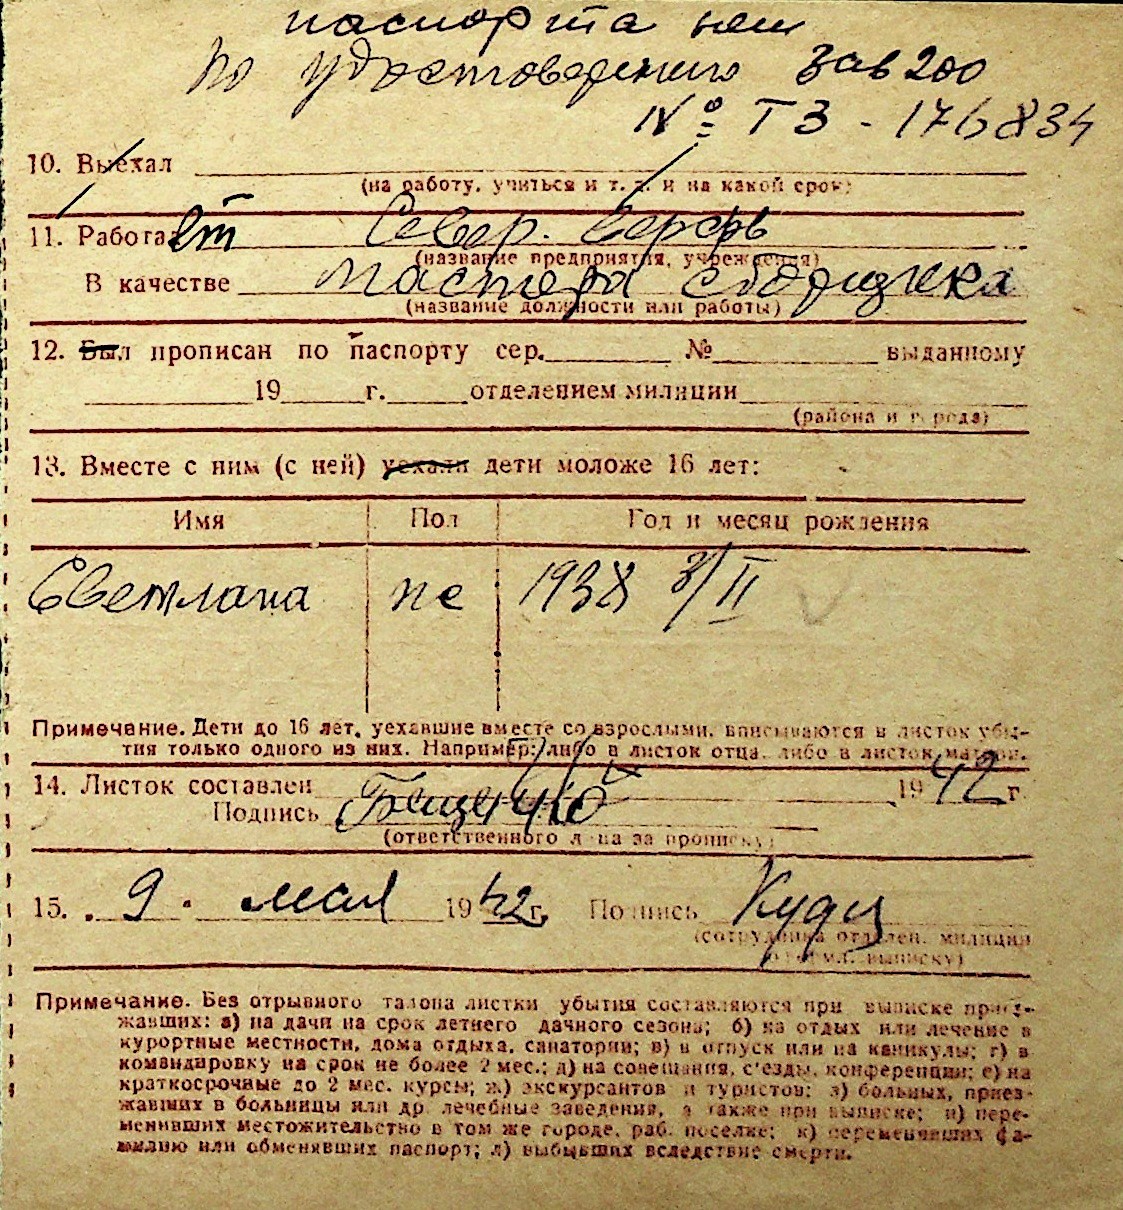 паспорта нет
по удостоверению зав 200
№ ТЗ - 176834
10. Выехал
(на работу, учиться и т. д. и на какой срок)
11. Работает Север. верфь
(название предприятия, учреждения)
В качестве мастера сборщика
(название должности или работы)
12. Был прописан по паспорту сер. № выданному
19 г. отделением милиции
(района и города)
13. Вместе с ним (с ней) уехали дети моложе 16 лет:
Имя Пол Год и месяц рождения
Светлана же 1938 3/II
Примечание. Дети до 16 лет, уехавшие вместе со взрослыми, вписываются в листок убы-
тия только одного из них. Например: либо в листок отца, либо в листок матери.
14. Листок составлен 1942 г.
Подпись
(ответственного лица за прописку)
15. 9. мая 1942 г. Подпись
(сотрудника отделен. милиции
выписку)
Примечание. Без отрывного талона листки убытия составляются при выписке приез-
жавших: а) на дачи на срок летнего дачного сезона; б) на отдых или лечение в
курортные местности, дома отдыха, санатории; в) в отпуск или на каникулы; г) в
командировку на срок не более 2 мес.; д) на совещания, с'езды, конференции; е) на
краткосрочные до 2 мес. курсы; ж) экскурсантов и туристов; з) больных, приез-
жавших в больницы или др. лечебные заведения, а также при выписке; и) пере-
менивших местожительство в том же городе, раб. поселке; к) переменивших фа-
милию или обменявших паспорт; л) выбывших вследствие смерти.